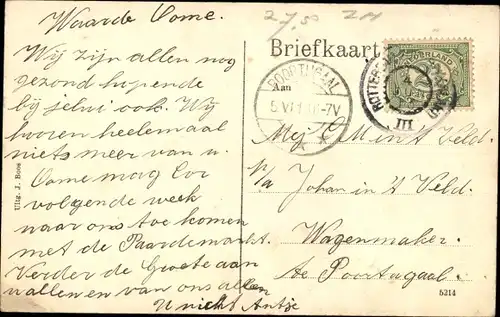 Waarde Oome.
Wij zijn allen nog
gezond hopende
bij jelui ook. Wij
hooren heelemaal
niets meer van u.
Oome mag Cor
volgende week
naar ons toe komen
met de Paardemarkt.
Verder de Groete aan
allen en van ons allen
U nicht Antje
Uitg. J. Boos
27,50
Briefkaart
Aan
POORTUGAAL
5 VI 1
-7V
ROTTERD
III
NEDERLAND
Mej C M in 't Veld.
p/a Johan in 't Veld.
Wagenmaker.
te Poortugaal.
5214